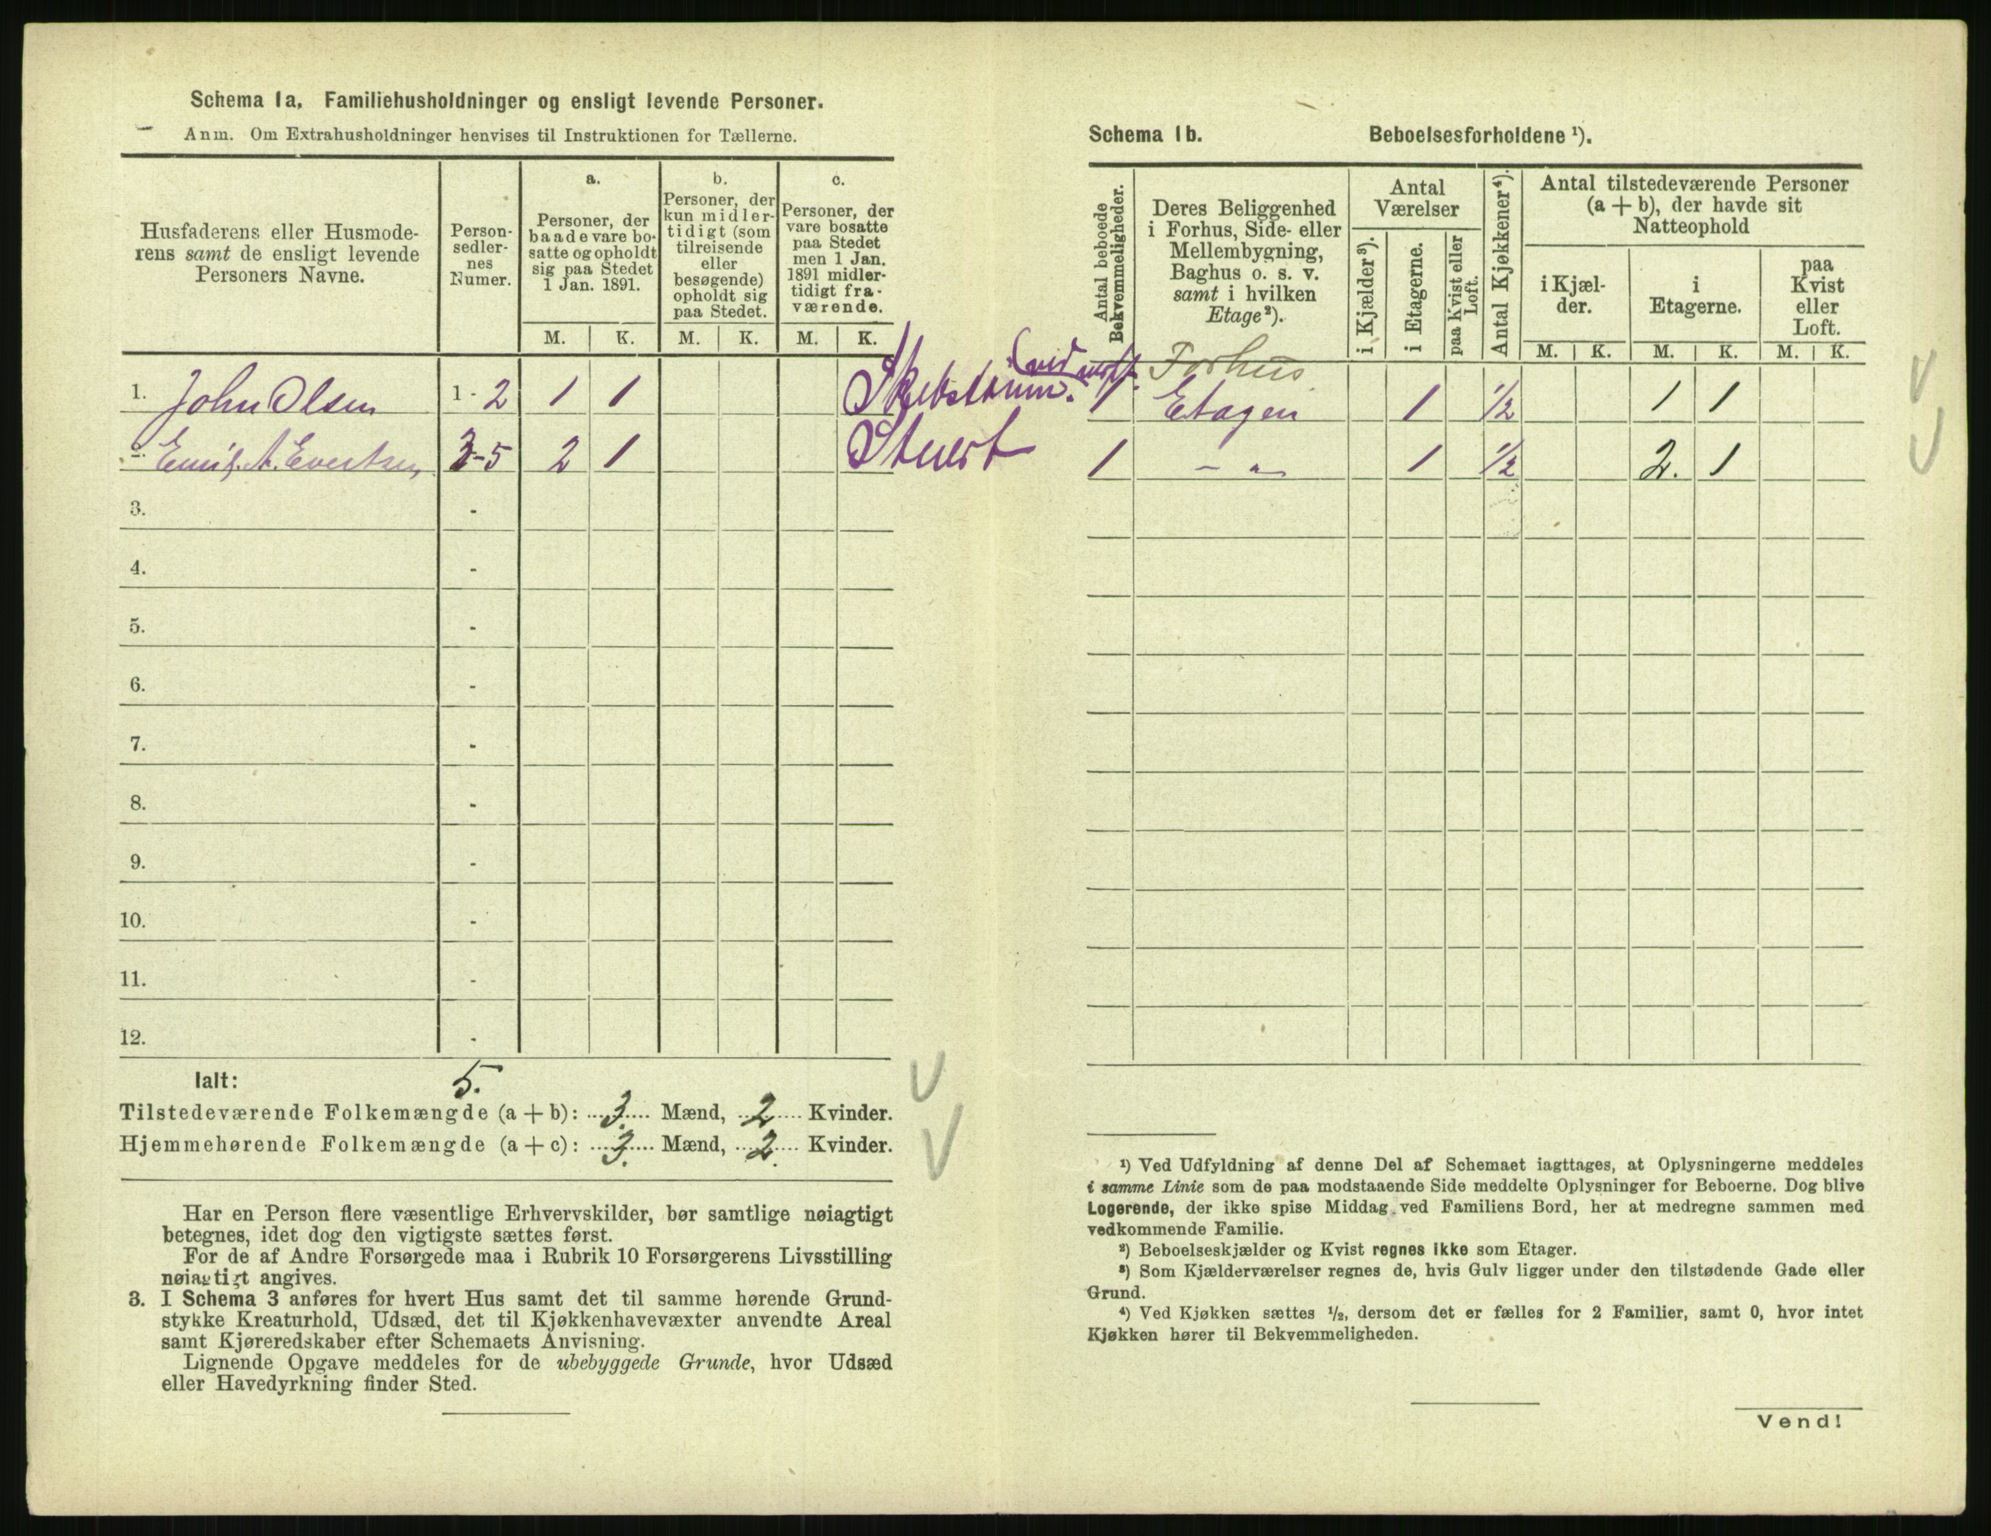 Schema 1a. Familiehusholdninger og ensligt levende Personer.
Anm. Om Extrahusholdninger henvises til Instruktionen for Tællerne.
Husfaderens eller Husmoderens samt de ensligt levende Personers Navne.
Personsedlernes Numer.
a.
Personer, der baade vare bosatte og opholdt sig paa Stedet 1 Jan. 1891.
b.
Personer, der kun midlertidigt (som tilreisende eller besøgende) opholdt sig paa Stedet.
c.
Personer, der vare bosatte paa Stedet men 1 Jan. 1891 midlertidigt fraværende.
M. K. M. K. M. K.
1. John Olsen 1-2 1 1
2. Emil A. Evertsen 3-5 2 1 Stuert
3. -
4. -
5. -
6. -
7. -
8. -
9. -
10. -
11. -
12. -
Ialt: 5.
Tilstedeværende Folkemængde (a + b): 3. Mænd, 2 Kvinder.
Hjemmehørende Folkemængde (a + c): 3. Mænd, 2. Kvinder.
Har en Person flere væsentlige Erhvervskilder, bør samtlige nøiagtigt
betegnes, idet dog den vigtigste sættes først.
For de af Andre Forsørgede maa i Rubrik 10 Forsørgerens Livsstilling
nøiagtigt angives.
3. I Schema 3 anføres for hvert Hus samt det til samme hørende Grund-
stykke Kreaturhold, Udsæd, det til Kjøkkenhavevæxter anvendte Areal
samt Kjøreredskaber efter Schemaets Anvisning.
Lignende Opgave meddeles for de ubebyggede Grunde, hvor Udsæd
eller Havedyrkning finder Sted.
Schema 1b. Beboelsesforholdene ¹).
Antal beboede Bekvemmeligheder.
Deres Beliggenhed i Forhus, Side- eller Mellembygning, Baghus o. s. v. samt i hvilken Etage²).
Antal Værelser
i Kjælder³).
i Etagerne.
paa Kvist eller Loft.
Antal Kjøkkener⁴).
Antal tilstedeværende Personer (a + b), der havde sit Natteophold
i Kjælder.
i Etagerne.
paa Kvist eller Loft.
M. K. M. K. M. K.
Forhus
1 Etagen 1 1/2 1 1
1 - " - 1 1/2 2. 1
¹) Ved Udfyldning af denne Del af Schemaet iagttages, at Oplysningerne meddeles
i samme Linie som de paa modstaaende Side meddelte Oplysninger for Beboerne. Dog blive
Logerende, der ikke spise Middag ved Familiens Bord, her at medregne sammen med
vedkommende Familie.
²) Beboelseskjælder og Kvist regnes ikke som Etager.
³) Som Kjælderværelser regnes de, hvis Gulv ligger under den tilstødende Gade eller
Grund.
⁴) Ved Kjøkken sættes ½, dersom det er fælles for 2 Familier, samt 0, hvor intet
Kjøkken hører til Bekvemmeligheden.
Vend!